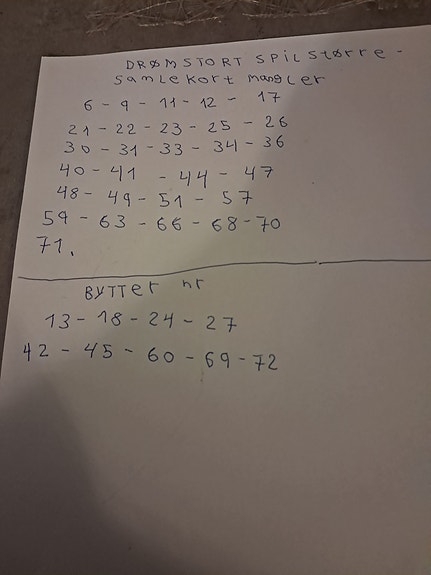 DRØM STORT SPIL Større -
samlekort mangler
6 - 9 - 11 - 12 - 17
21 - 22 - 23 - 25 - 26
30 - 31 - 33 - 34 - 36
40 - 41 - 44 - 47
48 - 49 - 51 - 57
59 - 63 - 66 - 68 - 70
71.
BYTTer nr
13 - 18 - 24 - 27
42 - 45 - 60 - 69 - 72